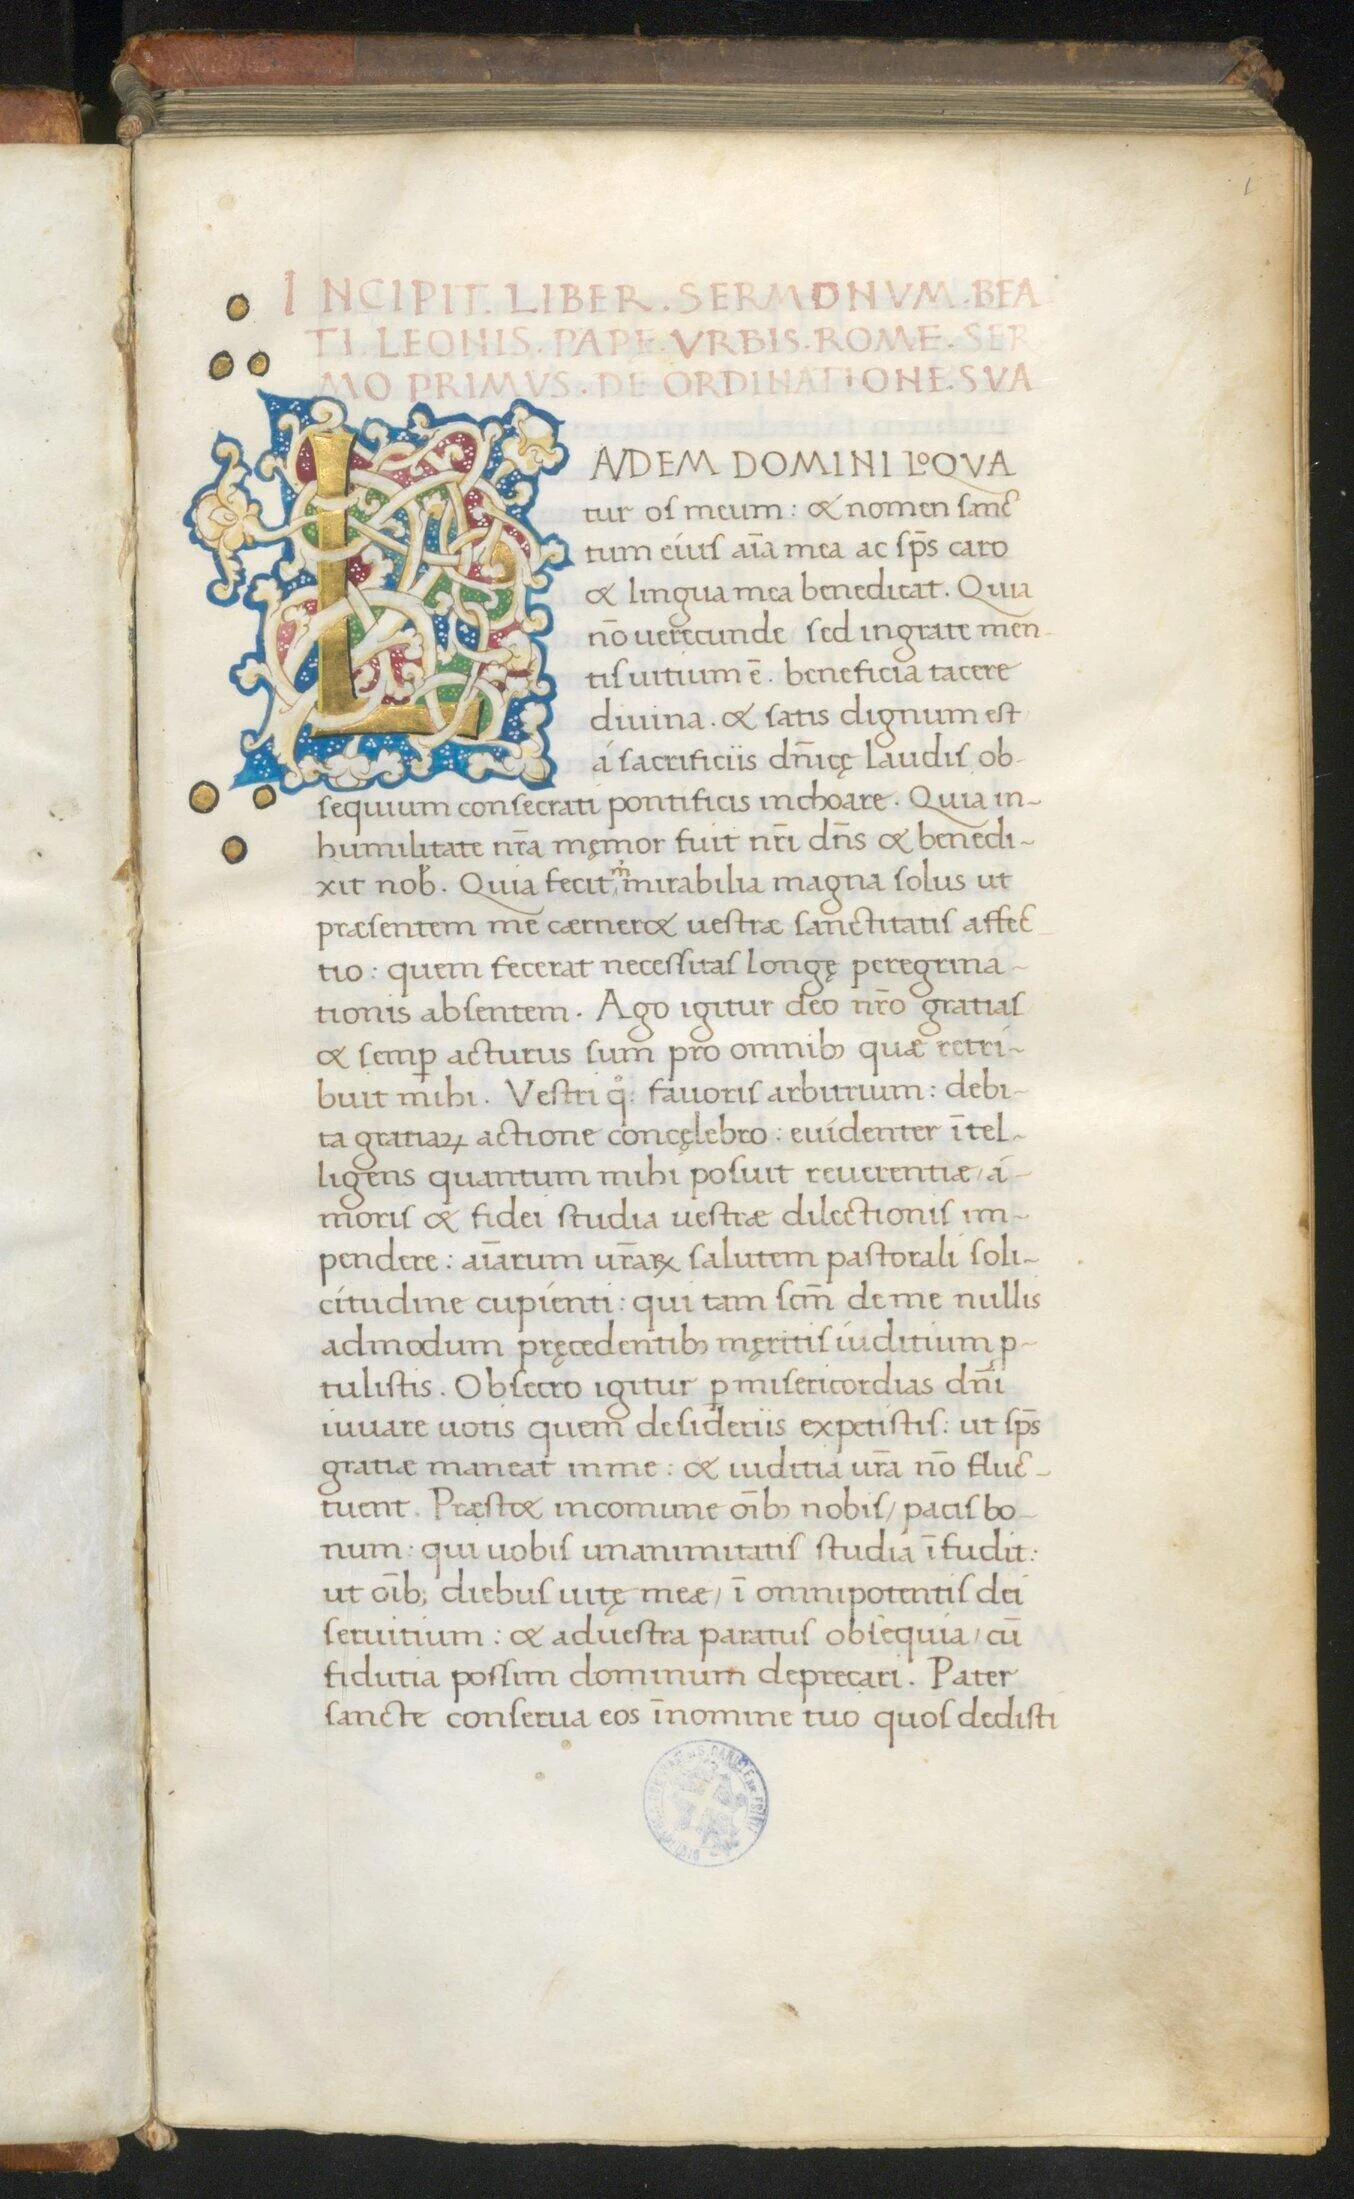 1
INCIPIT. LIBER. SERMONVM. BEA
TI. LEONIS. PAPE. VRBIS. ROME. SER
MO PRIMVS. DE ORDINATIONE. SVA
LAVDEM DOMINI LOQVA
tur os meum: & nomen sanc
tum eius aīa mea ac sp̄s caro
& lingua mea benedicat. Quia
nō uerecunde sed ingrate men-
tis uitium ē. beneficia tacere
diuina. & satis dignum est
á sacrificiis dn̄icę laudis ob-
sequium consecrati pontificis inchoare. Quia in-
humilitate nr̄a męmor fuit nr̄i dn̄s & benedi-
xit nob̄. Quia fecit m̊ mirabilia magna solus ut
præsentem me cærner& uestræ sanctitatis affec-
tio: quem fecerat necessitas longę peregrina-
tionis absentem. Ago igitur deo nr̄o gratias
& semꝑ acturus sum pro omnibꝫ quæ retri-
buit mihi. Vestri q̊: fauoris arbitrium: debi-
ta gratiaꝝ actione concęlebro: euidenter ītel-
ligens quantum mihi posuit reuerentiæ/ á-
moris & fidei studia uestræ dilectionis im-
pendere: aīarum ur̄aꝝ salutem pastorali soli-
citudine cupienti: qui tam scm̄ de me nullis
admodum pręcedentibꝫ męritis iuditium p-
tulistis. Obsecro igitur ꝑ misericordias dn̄i
iuuare uotis quem desideriis expetistis: ut sp̄s
gratiæ maneat in me: & iuditia ur̄a nō fluc-
tuent. Præst& in comune oībꝫ nobis/ pacis bo-
num: qui uobis unanimitatis studia īfudit:
ut oīb; diebus uitę meæ/ ī omnipotentis dei
seruitium: & ad uestra paratus obsequia/ cū
fidutia possim dominum deprecari. Pater
sancte conserua eos īnomine tuo quos dedisti